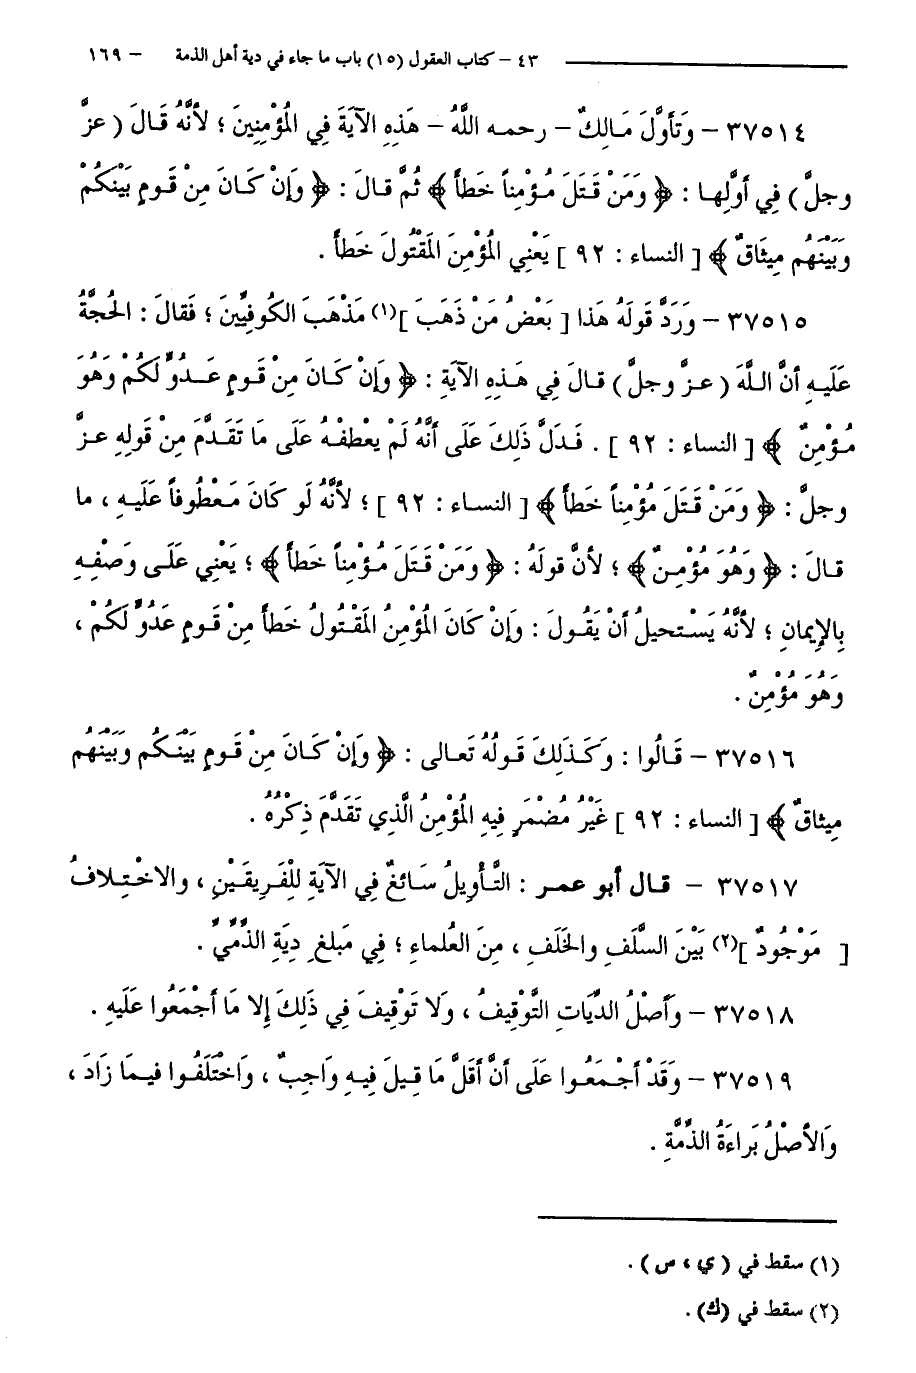 ٤٣ – كتاب العقول (١٥) باب ما جاء في دية أهل الذمة – ١٦٩
٣٧٥١٤ – وَتَأَوَّلَ مَالِكٌ – رحمه اللَّهُ – هَذِهِ الآيَةَ فِي المُؤْمِنِينَ ؛ لأَنَّهُ قَالَ ( عزَّ
وجلَّ ) فِي أوَّلِها : ﴿ وَمَنْ قَتَلَ مُؤْمِناً خَطَأً ﴾ ثُمَّ قالَ : ﴿ وَإنْ كَانَ مِنْ قَومٍ بَيْنَكُمْ
وَبَيْنَهُم مِيثَاقٌ ﴾ [ النساء : ٩٢ ] يَعْنِي المُؤْمِنَ المَقْتُولَ خَطَأً .
٣٧٥١٥ – وَرَدَّ قَولَهُ هَذا [ بَعْضُ مَنْ ذَهَبَ ](١) مَذْهَبَ الكُوفِيِّينَ ؛ فَقالَ : الحُجَّةُ
عَلَيهِ أنَّ اللَّهَ ( عزَّ وجلَّ ) قالَ فِي هَذِهِ الآيَةِ : ﴿ وإنْ كَانَ مِنْ قَومٍ عَدُوٍّ لَكُمْ وَهُوَ
مُؤْمِنٌ ﴾ [ النساء : ٩٢ ] . فَدَلَّ ذَلِكَ عَلَى أنَّهُ لَمْ يعْطفْهُ عَلَى مَا تَقَدَّمَ مِنْ قَولِهِ عزَّ
وجلَّ : ﴿ وَمَنْ قَتَلَ مُؤْمِناً خَطَأً ﴾ [ النساء : ٩٢ ] ؛ لأَنَّهُ لَو كَانَ مَعْطُوفاً عَلَيهِ ، ما
قالَ : ﴿ وَهُوَ مُؤْمِنٌ ﴾ ؛ لأنَّ قولَهُ : ﴿ وَمَنْ قَتَلَ مُؤْمِناً خَطَأً ﴾ ؛ يَعْنِي عَلَى وَصْفِهِ
بِالإِيمَانِ ؛ لأنَّهُ يَسْتحيلُ أنْ يَقُولَ : وَإنْ كَانَ المُؤْمِنُ المَقْتولُ خَطَأً مِنْ قَومٍ عَدُوٍّ لَكُمْ ،
وَهُوَ مُؤْمِنٌ .
٣٧٥١٦ – قَالُوا : وَكَذَلِكَ قَولُهُ تَعالى : ﴿ وَإنْ كَانَ مِنْ قَومٍ بَيْنَكُم وَبَيْنَهُم
مِيثاقٌ ﴾ [ النساء : ٩٢ ] غَيْرُ مُضْمَرٍ فِيهِ المُؤْمِنُ الَّذِي تَقَدَّمَ ذِكْرُهُ .
٣٧٥١٧ – قال أبو عمر : التَّأوِيلُ سَائغٌ فِي الآيَةِ لِلْفَرِيقَيْنِ ، والاخْتِلافُ
[ مَوْجُودٌ ](٢) بَيْنَ السَّلَفِ والخَلَفِ ، مِنَ العُلَماءِ ؛ فِي مَبلَغِ دِيَةِ الذِّمِّيِّ .
٣٧٥١٨ – وأصْلُ الدِّيَاتِ التَّوْقِيفُ ، وَلا تَوْقِيفَ فِي ذَلِكَ إِلا مَا أجْمَعُوا عَلَيهِ .
٣٧٥١٩ – وَقَدْ أجْمَعُوا عَلَى أنَّ أقَلَّ مَا قِيلَ فِيهِ وَاجِبٌ ، وَاخْتَلَفُوا فِيمَا زَادَ ،
وَالأصْلُ بَرَاءَةُ الذِّمَّةِ .
(١) سقط في ( ي ، ص ) .
(٢) سقط في (ك) .